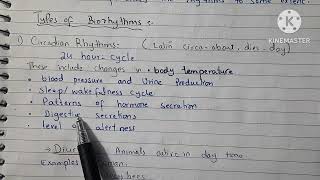 the rhythms to some extent.
Types of Biorhythms :-
1) Circadian Rhythms: (Latin circa-about, dies-day)
24 hour cycle
These include changes in • body temperature
• blood pressure and Urine production
• Sleep/wakefulness cycle
• Patterns of hormone secretion
• Digestive secretions
• level of alertness
→ Animals active in day time
Examples
KINEMASTER